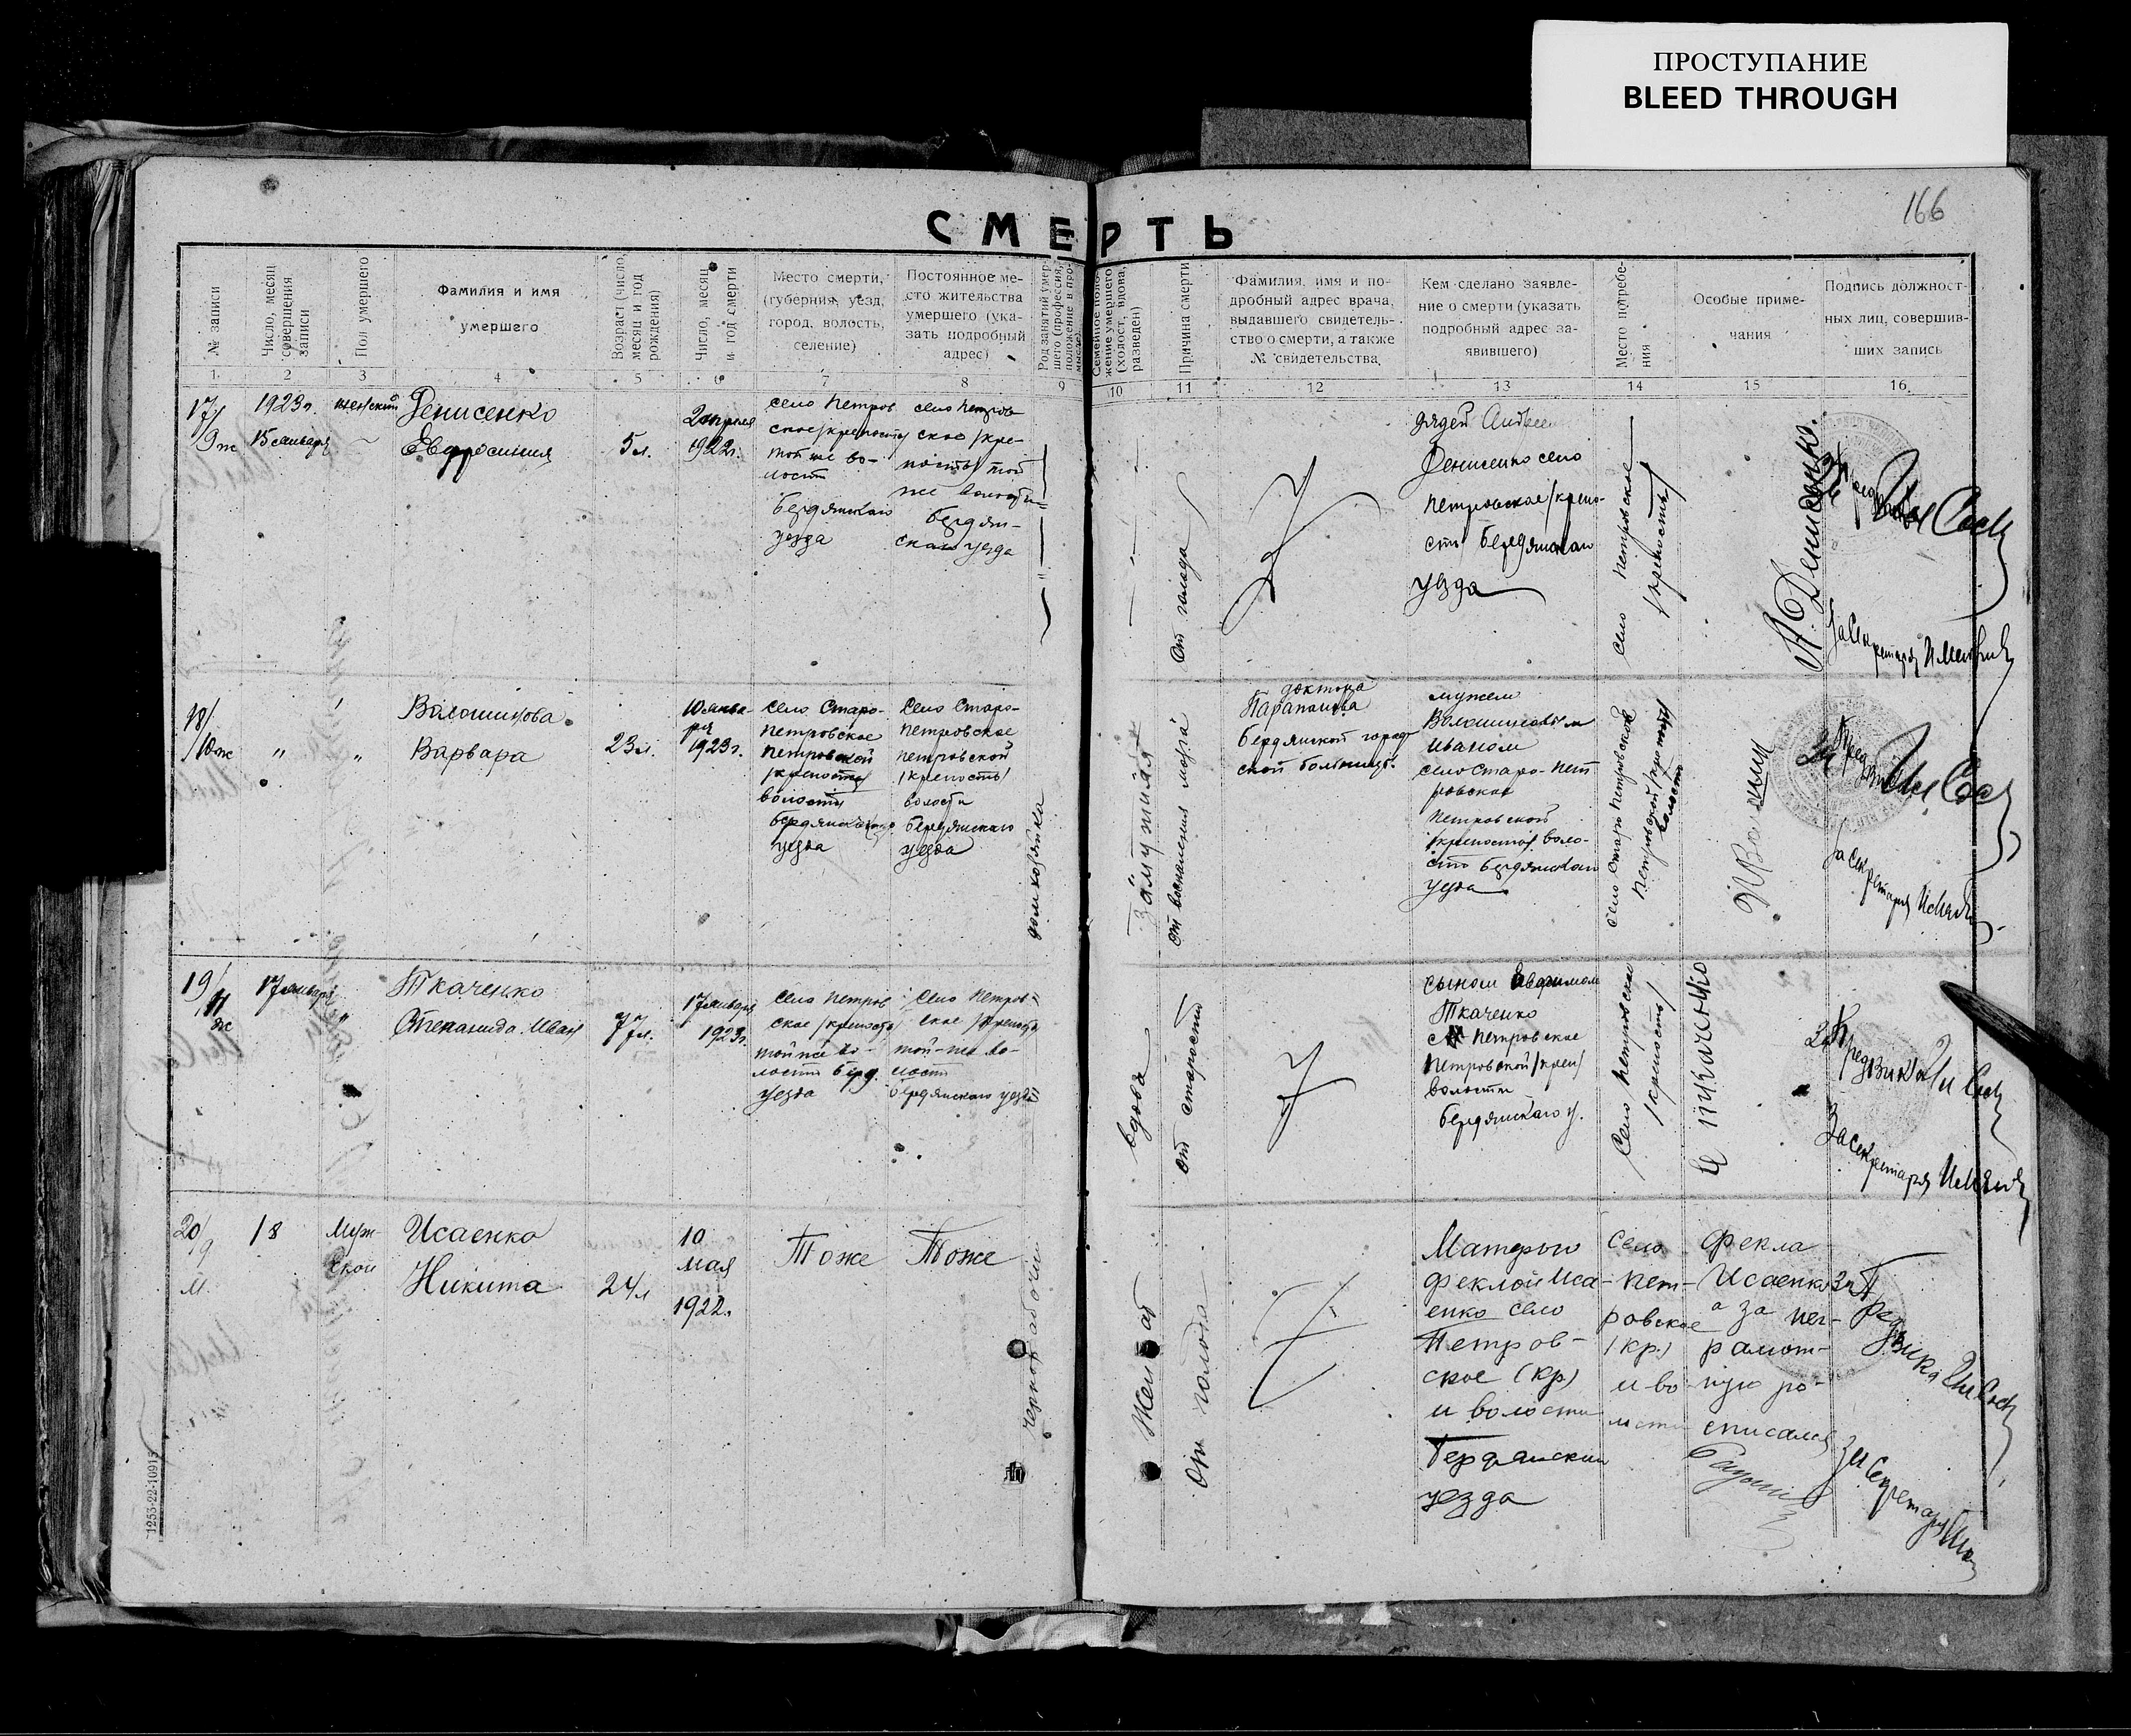 ПРОСТУПАНИЕ
BLEED THROUGH
166
СМЕРТЬ
№ записи
Число, месяц совершения записи
Пол умершего
Фамилия и имя
умершего
Возраст (число, месяц и год рождения)
Число, месяц и год смерти
Место смерти,
(губерния, уезд,
город, волость,
селение)
Постоянное ме-
сто жительства
умершего (ука-
зать подробный
адрес)
Род занятий умер-
шего (профессия,
положение в про-
Семейное поло-
жение умершего
(холост, вдова,
разведен)
Причина смерти
Фамилия, имя и по-
дробный адрес врача,
выдавшего свидетель-
ство о смерти, а также
№ свидетельства
Кем сделано заявле-
ние о смерти (указать
подробный адрес за-
явившего)
Место погребе-
ния
Особые приме-
чания
Подпись должност-
ных лиц, совершив-
ших запись
1 2 3 4 5 6 7 8 9 10 11 12 13 14 15 16
17/
9 ж
1923 г.
15 января
женский
Денисенко
Евфросиния
5 л.
2 апреля
1922 г.
село Петров
ское /крепость/
той же во-
лости
Бердянскаго
уезда
село Петров
ское /кре-
пость/ той
же волости
Бердян-
скаго уезда
от голода
дядей Андреем
Денисенко село
Петровское /крепо-
сть/ Бердянскаго
уезда
село Петровское
/крепость/
А. Денисенко.
За Секретаря
18/
10 ж
"
"
Волошинова
Варвара
23 л.
10 янва-
ря
1923 г.
село Старо-
Петровское
Петровской
/крепость/
волости
Бердянскаго
уезда
Село Старо-
Петровское
Петровской
/крепость/
волости
Бердянскаго
уезда
домхозяйка
замужняя
от воспаления мозга
доктора
Бердянской город
ской больницы.
мужем
Волошиновым
Иваном
село Старо-Пет
ровское
Петровской
/крепость/ воло-
сти Бердянскаго
уезда
село Старо Петровское
Петровской /крепость/
волости
За Секретаря
19/
11
ж
17 января
"
Ткаченко
Степанида Иван
77 л.
17 января
1923 г.
село Петров
ское /крепость/
той же во-
лости Берд.
уезда
Село Петров-
ское /крепость/
той-же во-
лости
Бердянскаго уезда
вдова
от старости
сыном Ефимом
Ткаченко
с. Петровское
Петровской /креп/
волости
Бердянскаго у.
Село Петровское
/крепость/
Е Ткаченко
За Предвика
За Секретаря
20/
9
м.
18
Муж-
ской
Исаенко
Никита
24 л
10
мая
1922 г.
Тоже
Тоже
чернорабочий
Женат
От голода
Матерью
Феклой Иса-
енко село
Петров-
ское (кр)
и волости
Бердянский
уезда
село
Пет-
ровское
/кр./
и во-
лости
Фекла
Исаенко
а за нег-
рамот-
ную ро-
списался
За Предвика
За Секретаря
1253-22-10915